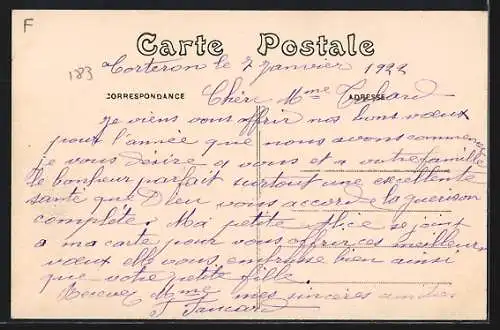 F
Carte Postale
183
Torteron le 2 Janvier 1922
CORRESPONDANCE
ADRESSE
Chère Mme
je viens vous offrir nos bons vœux
pour l'année que nous avons commencé
je vous desire a vous et a votre famille
le bonheur parfait surtout une excellente
santé que Dieu vous accorde la guérison
complète. Ma petite Alice se joint
a ma carte pour vous offrir ces meilleurs
vœux elle vous embrasse bien ainsi
que votre petite fille.
Recevez Mme mes sincères amitiés